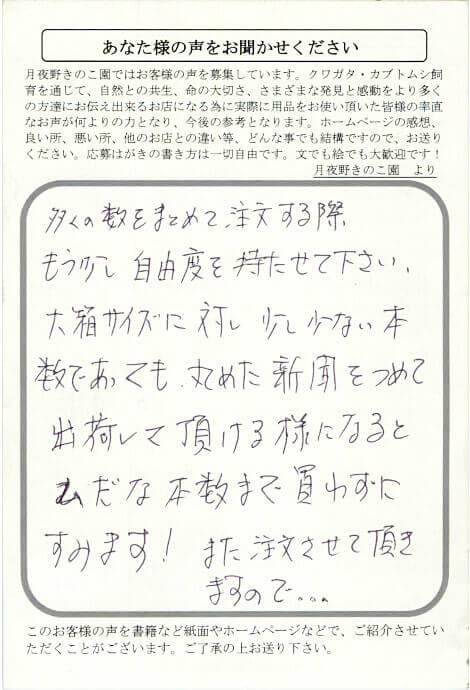 あなた様の声をお聞かせください
月夜野きのこ園ではお客様の声を募集しています。クワガタ・カブトムシ飼
育を通じて、自然との共生、命の大切さ、さまざまな発見と感動をより多く
の方達にお伝え出来るお店になる為に実際に用品をお使い頂いた皆様の率直
なお声が何よりの力となり、今後の参考となります。ホームページの感想、
良い所、悪い所、他のお店との違い等、どんな事でも結構ですので、お送り
ください。応募はがきの書き方は一切自由です。文でも絵でも大歓迎です！
月夜野きのこ園　より
多くの数をまとめて、注文する際
もう少し自由度を持たせて下さい、
大箱サイズに対し少し少ない本
数であっても、丸めた新聞をつめて
出荷して頂ける様になると
ムだな本数まで買わずに
すみます！また注文させて頂き
ますので…
このお客様の声を書籍など紙面やホームページなどで、ご紹介させてい
ただくことがございます。ご了承の上お送り下さい。